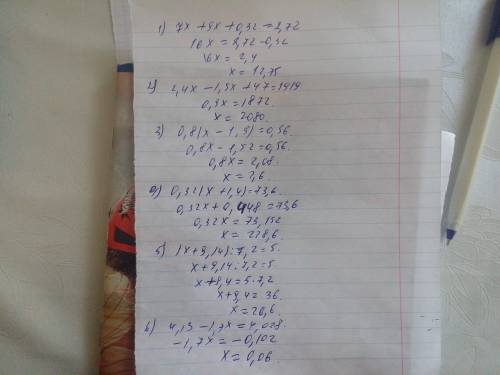 1) 7x + 9x + 0,32 = 2,72
16x = 2,72 - 0,32
16x = 2,4
2) 2,4x - 1,5x + 47 = 1919
0,9x = 1872
x = 2080.
3) 0,8(x - 1,9) = 0,56.
0,8x - 1,52 = 0,56.
0,8x = 2,08.
x = 2,6.
0,32(x + 1,4) = 73,6.
0,32x + 0,448 = 73,6
0,32x = 73,152
x = 228,6.
5) (x + 9,14) : 7,2 = 5.
x + 9,14 : 7,2 = 5
x + 9,4 = 5 · 7,2
x + 9,4 = 36.
x = 26,6.
6) 4,13 - 1,7x = 4,028.
-1,7x = -0,102
x = 0,06